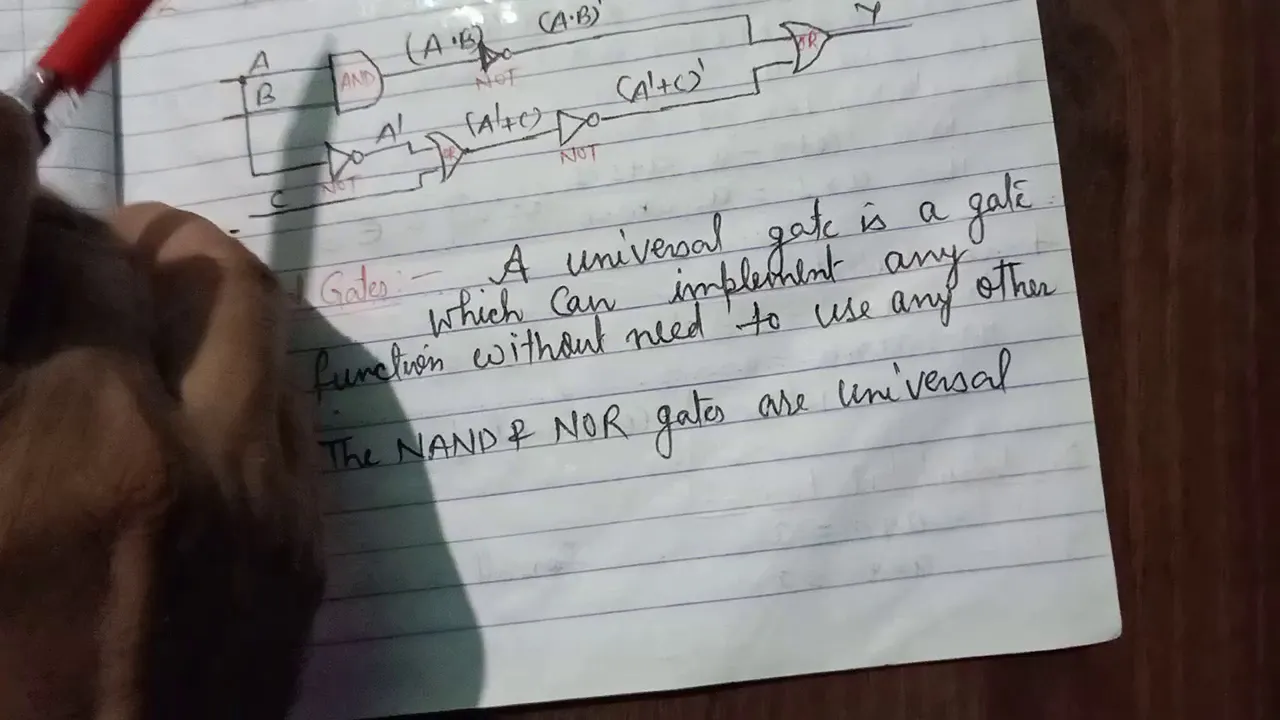 (A·B)'
Y
A
AND
(A·B)
NOT
OR
B
(A'+C)'
A'
OR
(A'+C)
NOT
NOT
C
Gates:- A universal gate is a gate
which can implement any
function without need to use any other
The NAND & NOR gates are universal